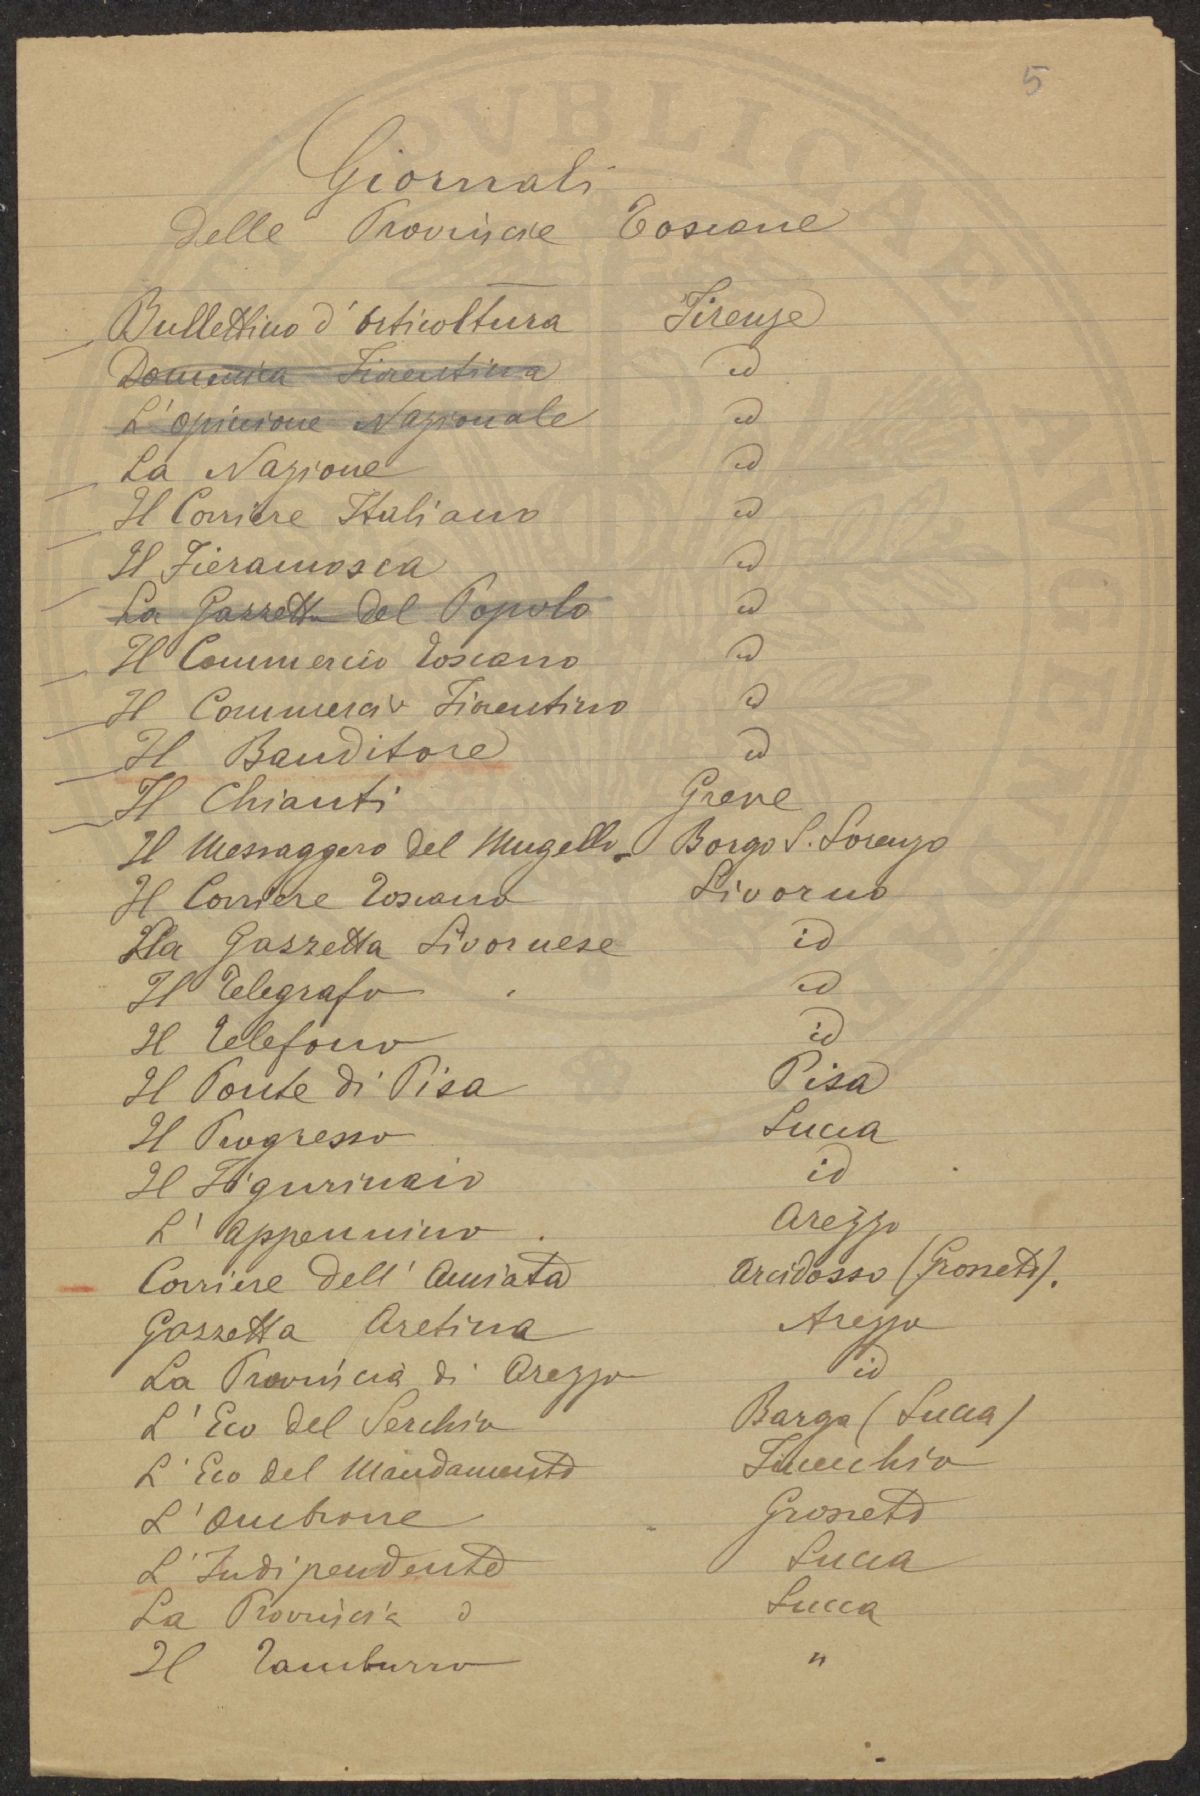 5
Giornali
delle Provincie Toscane
Bullettino d'orticoltura Firenze
Domenica Fiorentina id
L'opinione Nazionale id
La Nazione id
Il Corriere Italiano id
Il Fieramosca id
La Gazzetta del Popolo id
Il Commercio Toscano id
Il Commercio Fiorentino id
Il Banditore id
Il Chianti Greve
Il Messaggero del Mugello Borgo S. Lorenzo
Il Corriere Toscano Livorno
La Gazzetta Livornese id
Il Telegrafo id
Il Telefono id
Il Ponte di Pisa Pisa
Il Progresso Lucca
Il Figurinaio id
L'Appennino Arezzo
Corriere dell'Amiata Arcidosso (Grosseto).
Gazzetta Aretina Arezzo
La Provincia di Arezzo id
L'Eco del Serchio Barga (Lucca)
L'Eco del Mandamento Fucecchio
L'Ombrone Grosseto
L'Indipendente Lucca
La Provincia d Lucca
Il Tamburro "